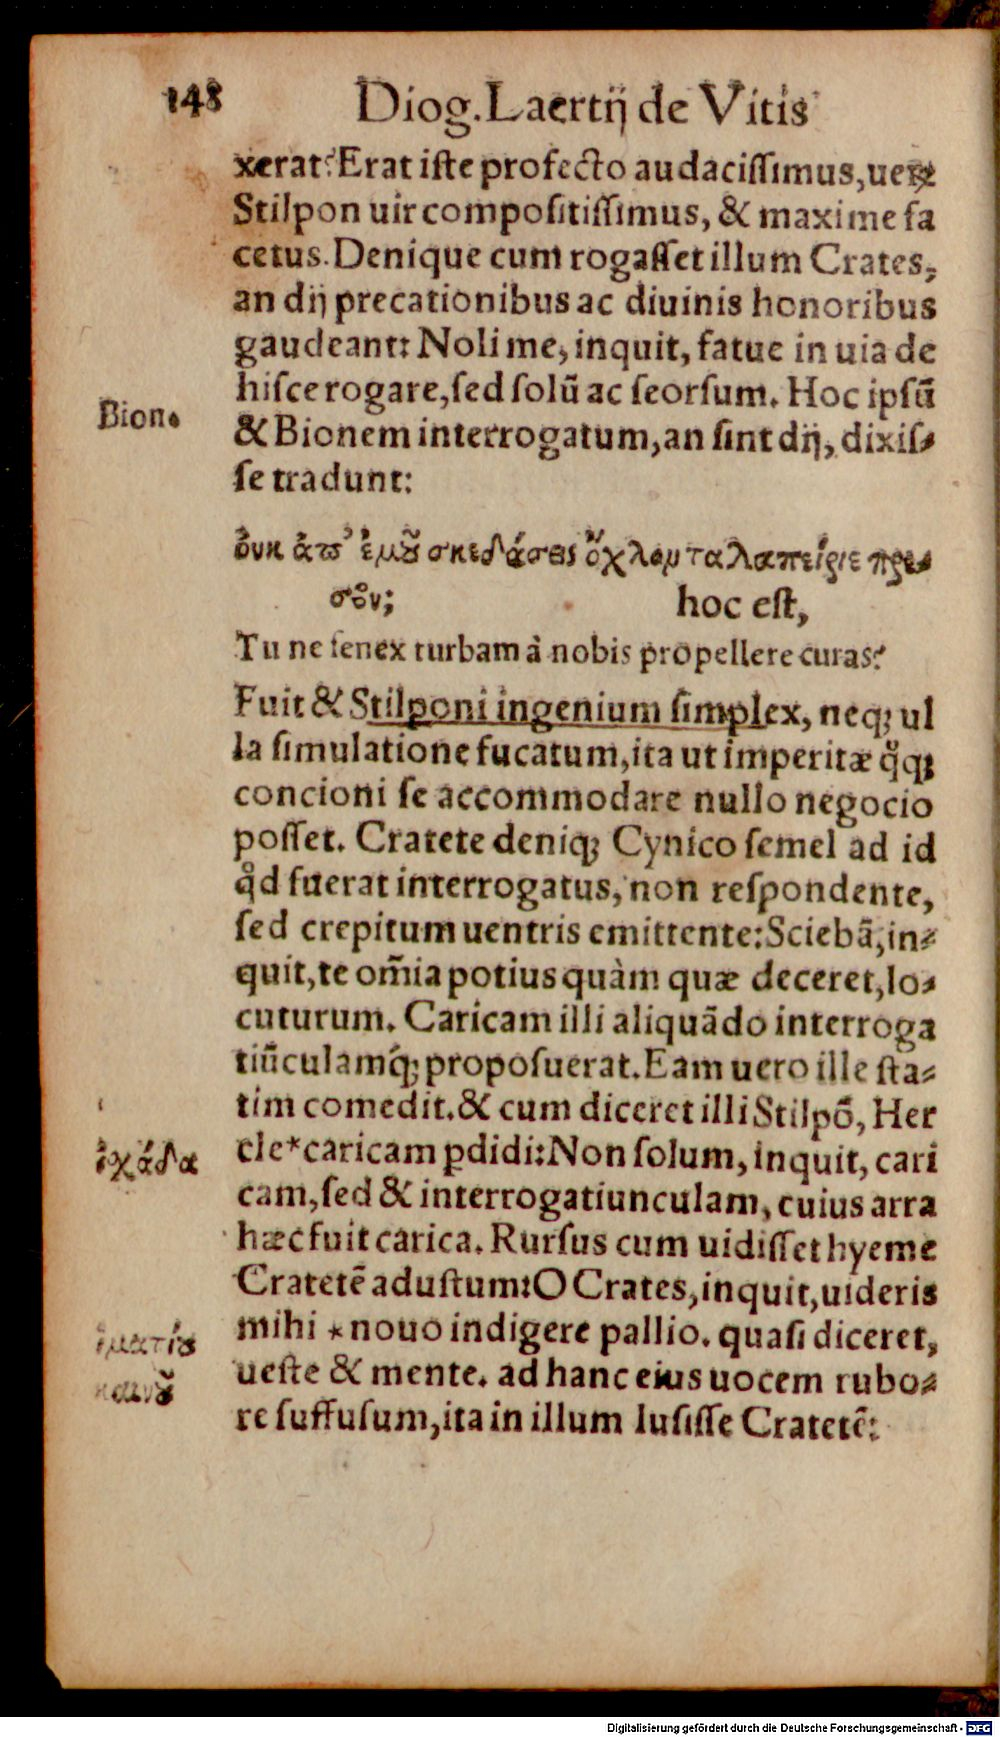 148 Diog. Laertij de Vitis
xerat? Erat iste profecto audacissimus, uerũ
Stilpon uir compositissimus, & maxime fa
cetus. Denique cum rogasset illum Crates,
an dij precationibus ac diuinis honoribus
gaudeant: Noli me, inquit, fatue in uia de
hisce rogare, sed solũ ac seorsum. Hoc ipsũ
Bion.
& Bionem interrogatum, an sint dij, dixis-
se tradunt:
ὀυκ ἀπ’ ἐμοῦ σκεδάσεις ὄχλον ταλαπείριε πρε-
σβῦ;
hoc est,
Tu ne senex turbam à nobis propellere curas?
Fuit & Stilponi ingenium simplex, neq; ul
la simulatione fucatum, ita ut imperitæ qͦq;
concioni se accommodare nullo negocio
posset. Cratete deniq; Cynico semel ad id
qͦd fuerat interrogatus, non respondente,
sed crepitum uentris emittente: Sciebã, in-
quit, te om̃ia potius quàm quæ deceret, lo-
cuturum. Caricam illi aliquãdo interroga
tiũculamq́; proposuerat. Eam uero ille sta-
tim comedit. & cum diceret illi Stilpõ, Her
ἰχάδα
cle * caricam ꝑdidi: Non solum, inquit, cari
cam, sed & interrogatiunculam, cuius arra
hæc fuit carica. Rursus cum uidisset hyeme
Cratetẽ adustum: O Crates, inquit, uideris
ἱματίου
mihi * nouo indigere pallio. quasi diceret,
καινοῦ
ueste & mente. ad hanc eius uocem rubo-
re suffusum, ita in illum lusisse Cratetẽ:
Digitalisierung gefördert durch die Deutsche Forschungsgemeinschaft - DFG